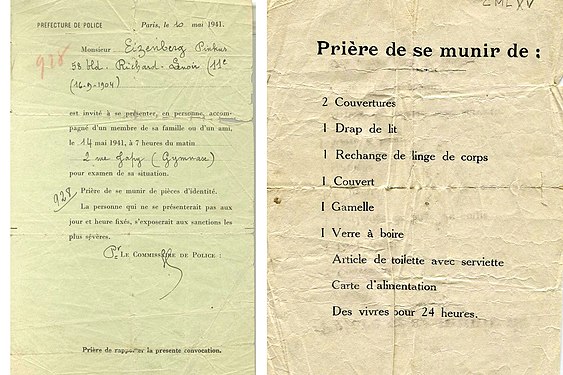 PRÉFECTURE DE POLICE
Paris, le 10 mai 1941.
Monsieur Eizenberg Pinkus
58 bld. Richard-Lenoir (11e
(16-9-1904)
928
est invité à se présenter, en personne, accom-
pagné d'un membre de sa famille ou d'un ami,
le 14 mai 1941, à 7 heures du matin
2 rue Japy (Gymnase)
pour examen de sa situation.
928
Prière de se munir de pièces d'identité.
La personne qui ne se présenterait pas aux
jour et heure fixés, s'exposerait aux sanctions les
plus sévères.
Pr LE COMMISSAIRE DE POLICE :
Prière de rapporter la présente convocation.
Prière de se munir de :
2 Couvertures
1 Drap de lit
1 Rechange de linge de corps
1 Couvert
1 Gamelle
1 Verre à boire
Article de toilette avec serviette
Carte d'alimentation
Des vivres pour 24 heures.